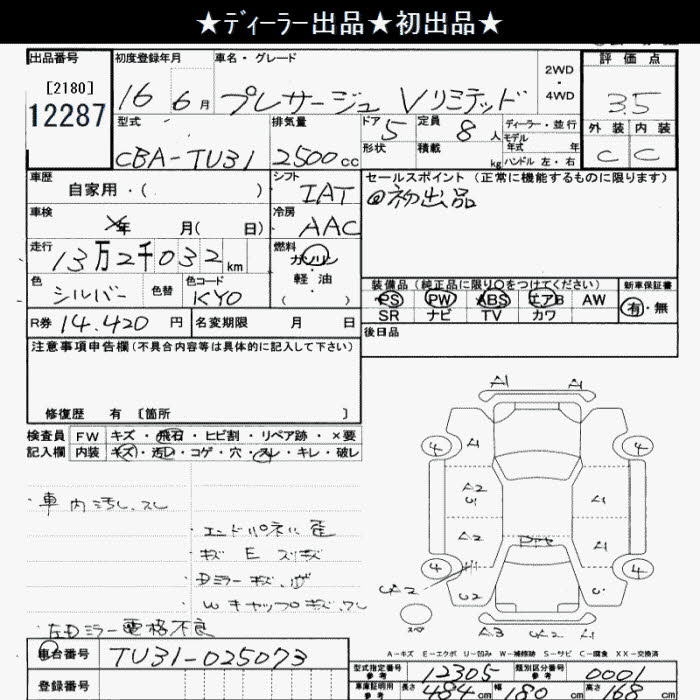 ★ディーラー出品★初出品★
出品番号
[2180]
12287
初度登録年月
16 6月
車名・グレード
プレサージュ Vリミテッド
2WD
・
4WD
評価点
3.5
外装 内装
C C
型式
CBA-TU31
排気量
2500cc
ドア 5
形状
定員 8人
積載 kg
ディーラー・並行
モデル
年式 年
ハンドル 左・右
車歴
自家用・( )
シフト
IAT
セールスポイント (正常に機能するものに限ります)
◎初出品
車検
年 月( 日)
冷房
AAC
走行
13万2千032km
燃料
ガソリン
・
軽油
( )
色
シルバー
色替
色コード
KYO
装備品 (純正品に限り○をつけてください)
PS PW ABS エアB AW
SR ナビ TV カワ
新車保証書
有・無
R券 14,420円
名変期限 月 日
後日品
注意事項申告欄 (不具合内容等は具体的に記入して下さい)
修復歴 有 〔箇所 〕
検査員
記入欄
FW キズ・飛石・ヒビ割・リペア跡・×要
内装 キズ・汚レ・コゲ・穴・スレ・キレ・破レ
・車内汚レ、スレ
・エンドパネル
・キズ E スリキズ
・Dミラーキズ
・Wキャップキズ、スレ
左Dミラー電格不良
A1 A1
4 A1 4
A2 U1 A1
A2 A1
4 4
U2 U1
スペ
A3 UA2 A1
A-キズ E-エクボ U-凹み W-補修跡 S-サビ C-腐食 XX-交換済
車台番号 TU31-025073
登録番号
型式指定番号 参考 12305
類別区分番号 参考 0001
車庫証明用 参考 長さ 484cm 幅 180cm 高さ 168cm